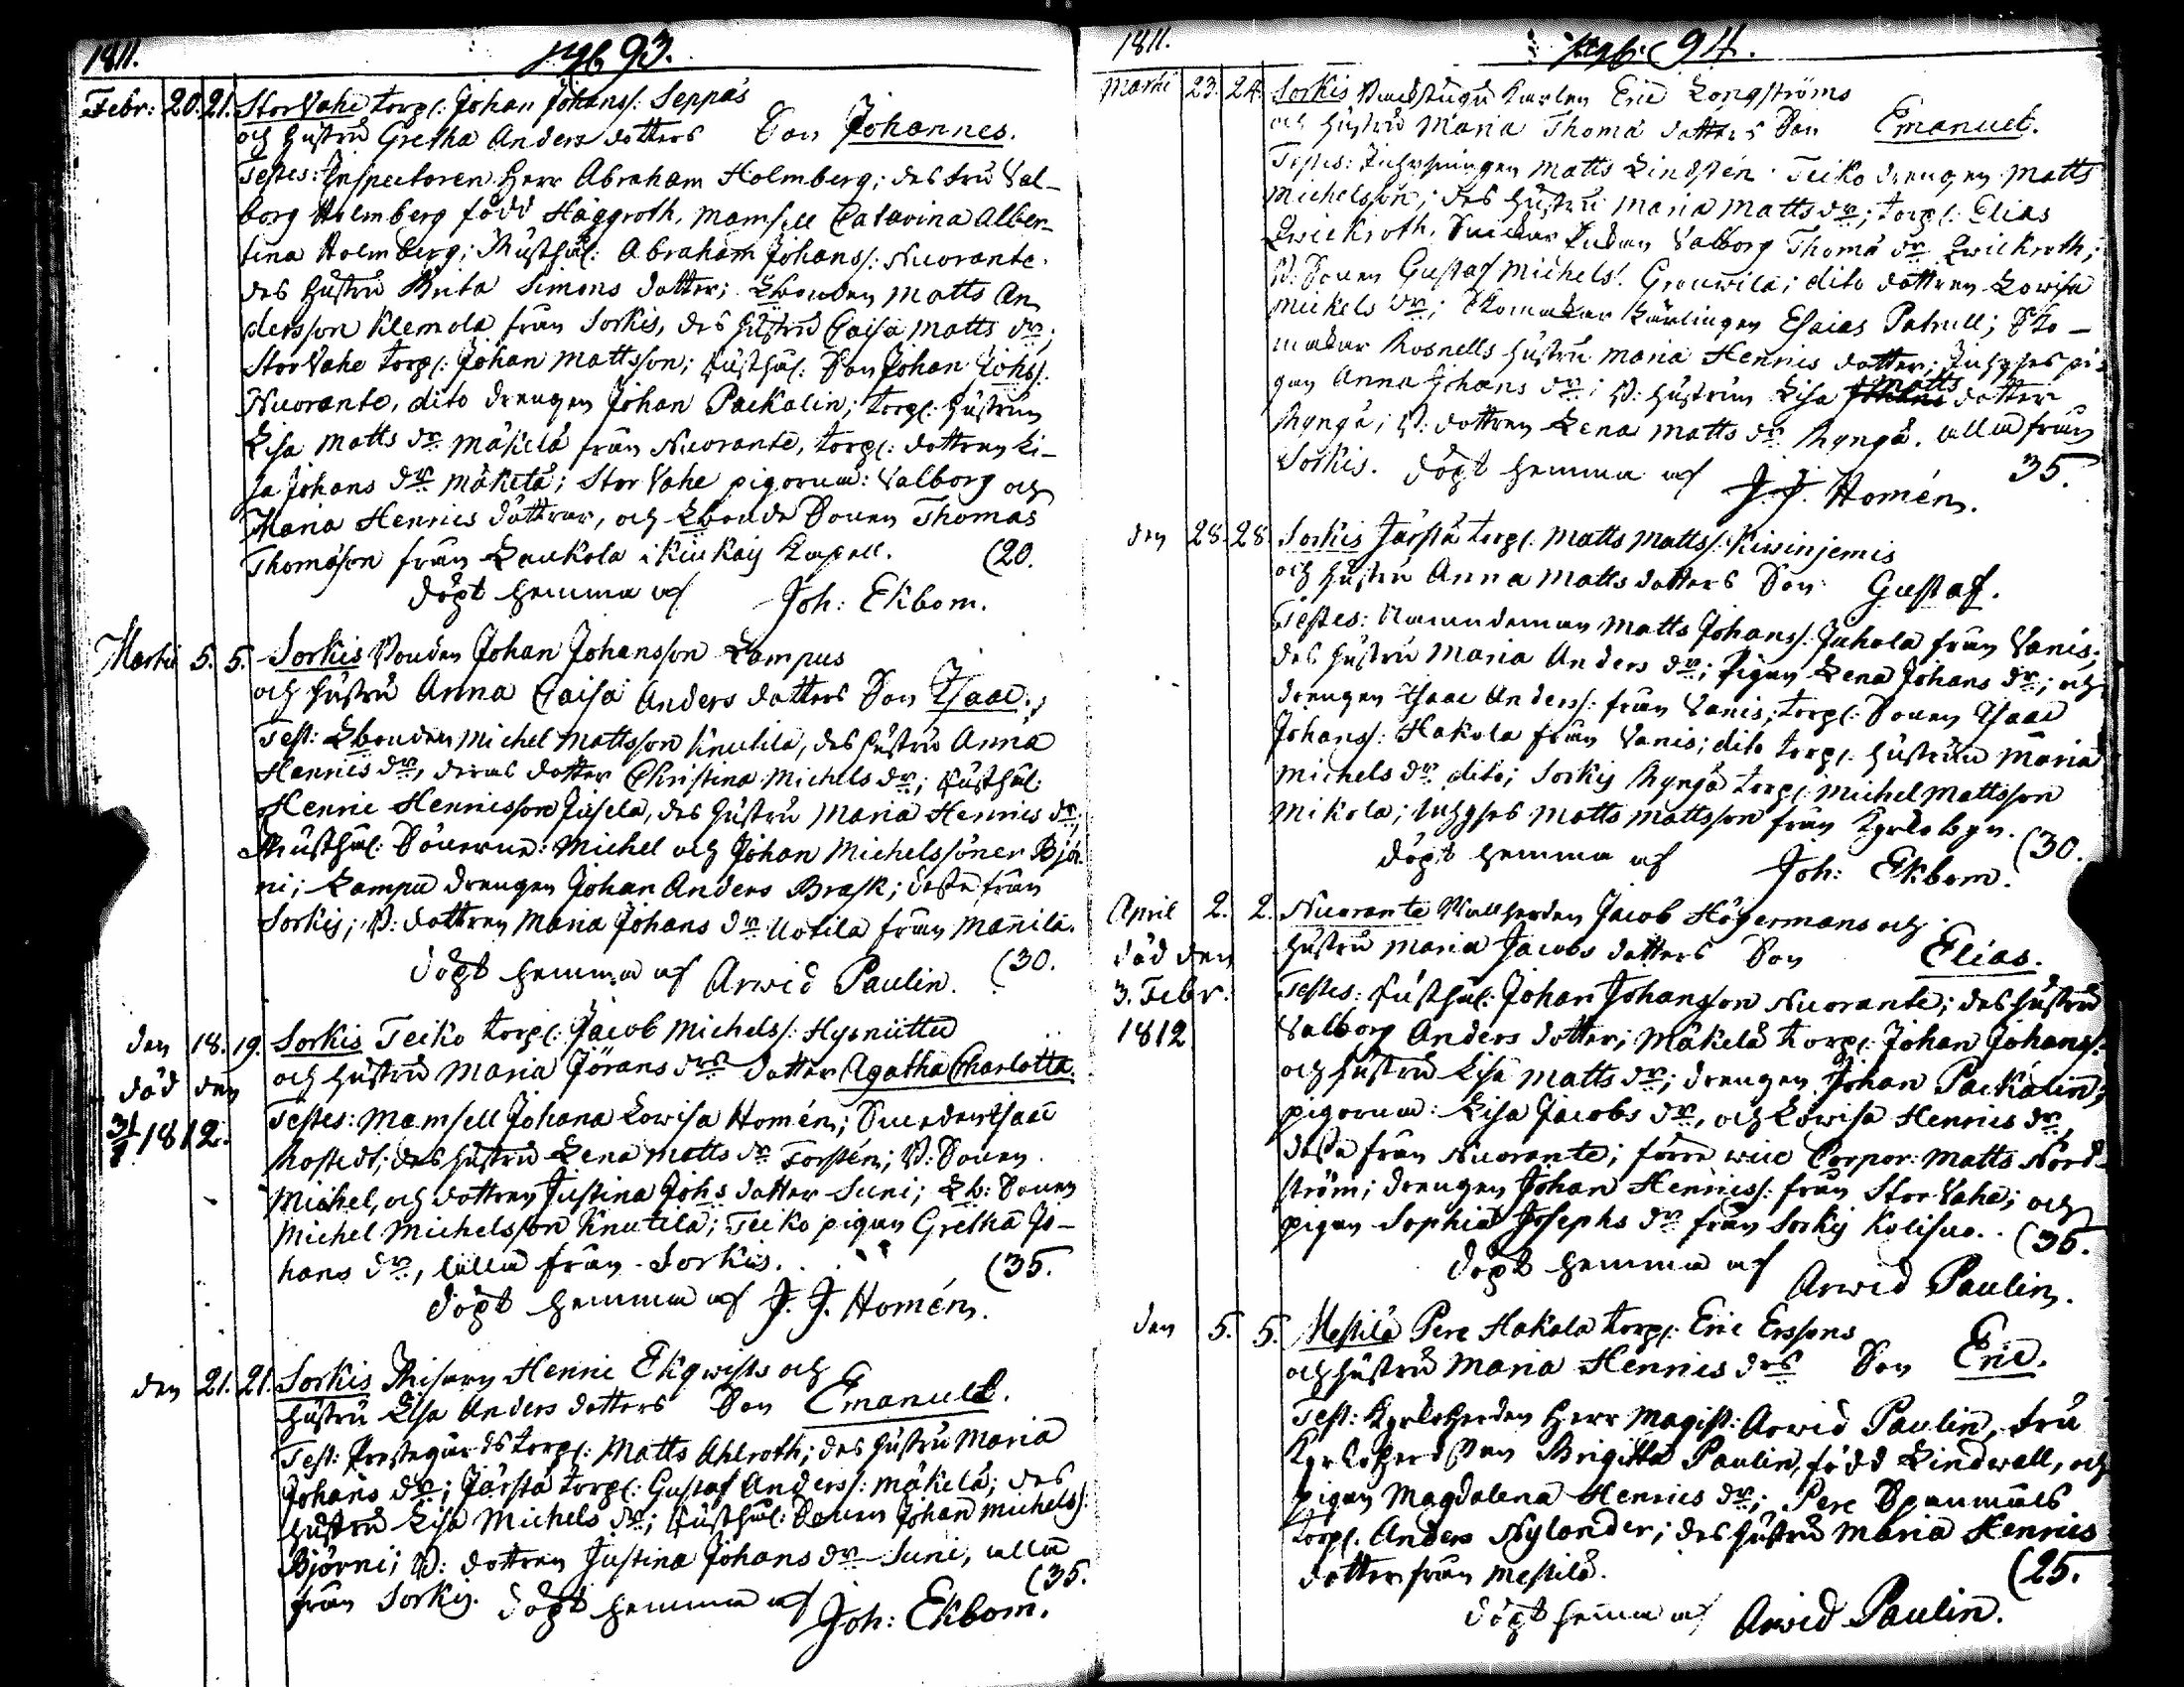 1811.
93.
Febr: 20. 21. Stor Vahe torp/: Johan Johans/: Seppäs
och hustru Gretha Anders dotters Son Johannes.
Testes: Inspectoren Herr Abraham Holmberg; des fru Val-
borg Holmberg född Häggroth, Mamsell Catarina Alber-
tina Holmberg; Rusthål: Abraham Johans/: Nuorante.
des hustru Brita Simons dotter; Lbonden Matts An
dersson Klemola från Sorkis, des hustru Caisa Matts dr;
Stor Vahe torp/: Johan Mattsson; Rusthål: Son Johan Johs/:
Nuorante, dito drengen Johan Packalin; torp/: hustrun
Lisa Matts dr Mäkelä från Nuorante, torp/: dottren Li-
sa Johans dr Mäkelä; Stor Vahe pigorna: Valborg och
Maria Henrics döttrar, och Lbonde Sonen Thomas
Thomasson från Laukola i Kiukais Capell. (20.
döpt hemma af Joh: Ekbom.
Martii 5. 5. Sorkis Bonden Johan Johansson Lampus
och hustru Anna Caisa Anders dotters Son Isaac.
Test: Lbonden Michel Mattsson Knutila, des hustru Anna
Henrics dr, deras dotter Christina Michels dr; Rusthål:
Henric Henricsson Jusela, des hustru Maria Henrics dr;
Rusthål: Sönerne: Michel och Johan Michelssöner Björ
ni; Lampu drengen Johan Anders Brask; desse från
Sorkis; B: dottren Maria Johans dr Uotila från Mannila.
(30.
döpt hemma af Arwid Paulin.
den 18. 19. Sorkis Teiko torp/: Jacob Michels/: Hysniittu
och hustru Maria Jörans drs dotter Agatha Charlotta.
död den
1812.
Testes: Mamsell Johana Lowisa Homén; Smeden Isaac
Rostedt; des hustru Lena Matts dr Forstén; B: Sonen
Michel, och dottren Justina Johs dotter Suni; Lb: Sonen
Michel Michelsson Knutila; Teiko pigan Gretha Jo-
hans dr, alla från Sorkis. (35.
döpt hemma af J. J. Homén.
den 21. 21. Sorkis Henric Ekqwists och
hustru Lisa Anders dotters Son Emanuel.
Test: Prestegårds torp/: Matts Ahlroth; des hustru Maria
Johans dr; Järstä torp/: Gustaf Anders/: Mäkelä; des
hustru Lisa Michels dr; Rusthål: Sonen Johan Michels/:
Björni; B: dottren Justina Johans dr Suni, alla
från Sorkis. (35.
döpt hemma af Joh: Ekbom.
1811.
94.
Martii 23. 24. Sorkis Karlen Eric Longströms
och hustru Maria Thomä dotters Son Emanuel.
Testes: Matts Lindstén. Teiko drengen Matts
Michelsson; des hustru Maria Matts dr; torp/: Elias
Qwickroth, Enkan Valborg Thomä dr Qwickroth;
B: Sonen Gustaf Michels/: Grouwila; dito dottren Lowisa
Mickels dr; Skomakar Lärlingen Esaias Patrull; Sko-
makar Rosnells hustru Maria Henrics dotter; Inhyses pi-
gan Anna Johans dr; B: hustrun Lisa Matts dotter
Ryngä; B: dottren Lena Matts dr Ryngä. alla från
Sorkis. 35.
döpt hemma af J. J. Homén.
den 28. 28. Sorkis Järstä torp/: Matts Matts/: Kiwinjemis
och hustru Anna Matts dotters Son Gustaf.
Testes: Nämndeman Matts Johans/: Juhola från Vanis;
des hustru Maria Anders dr; Pigan Lena Johans dr; och
drengen Isaac Anders/: från Vanis; torp/: Sonen Isaac
Johans/: Hakola från Vanis; dito torp/: hustrun Maria
Michels dr dito; Sorkis Ryngä torp/: Michel Mattsson
Mikola; Inhyses Matts Mattsson från Kyrkobyn. (30.
döpt hemma af Joh: Ekbom.
April 2. 2. Nuorante Vallherden Jacob Högermans och
hustru Maria Jacobs dotters Son Elias.
död den
3. Febr:
1812
Testes: Rusthål: Johan Johansson Nuorante; des hustru
Valborg Anders dotter; Mäkelä torp/: Johan Johans/:
och hustru Lisa Matts dr; drengen Johan Packalin;
pigorna: Lisa Jacobs dr, och Lowisa Henrics dr,
desse från Nuorante; förre vice Corpor: Matts Nord-
ström; drengen Johan Henrics/: från Stor Vahe; och
pigan Sophia Josephs dr från Sorkis Kolisuo. (35.
döpt hemma af
Arwid Paulin.
den 5. 5. Mestilä Pere Hakala torp/: Eric Erssons
och hustru Maria Henrics drs Son Eric.
Test: Kyrkoherden Herr Magist: Arwid Paulin, fru
Kyrkoherdskan Brigitta Paulin, född Lindwall, och
pigan Magdalena Henrics dr; Pere
torp/: Anders Nylander; des hustru Maria Henrics
dotter från Mestilä. (25.
döpt hemma af Arwid Paulin.